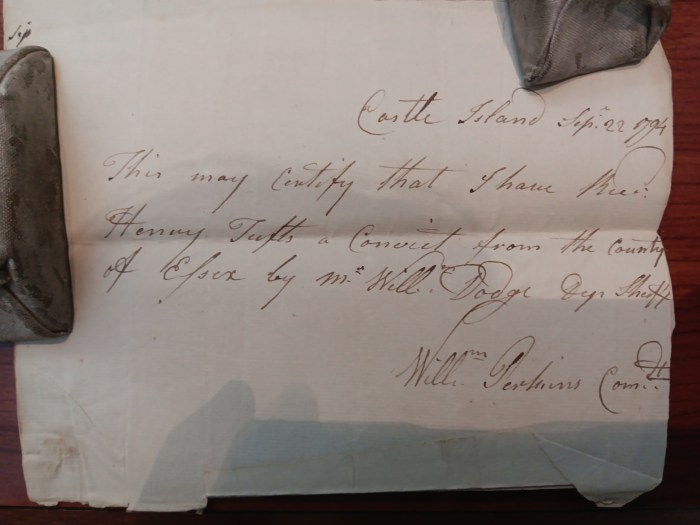 Sip
Castle Island Sepr. 22 1794
This may certify that I have Recd.
Henry Tufts a Convict from the County
of Essex by mr. Willm. Dodge Dep Sheff
Willm. Perkins Comdt.